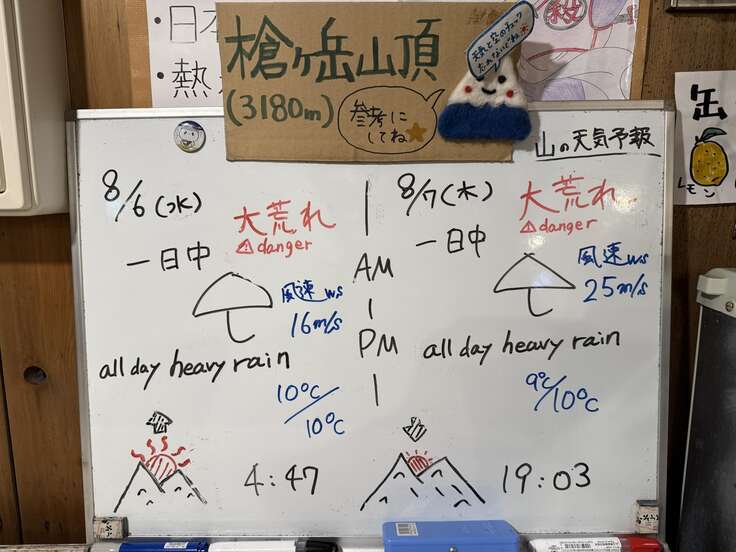 ・日本
・熱
槍ヶ岳山頂
(3180m)
参考に
してね
天気と空のチェック
忘れないでね
山の天気予報
缶
レモン
8/6(水)
大荒れ
danger
一日中
風速ws
16m/s
all day heavy rain
10℃/10℃
AM
PM
8/7(木)
大荒れ
danger
一日中
風速ws
25m/s
all day heavy rain
9℃/10℃
4:47
19:03